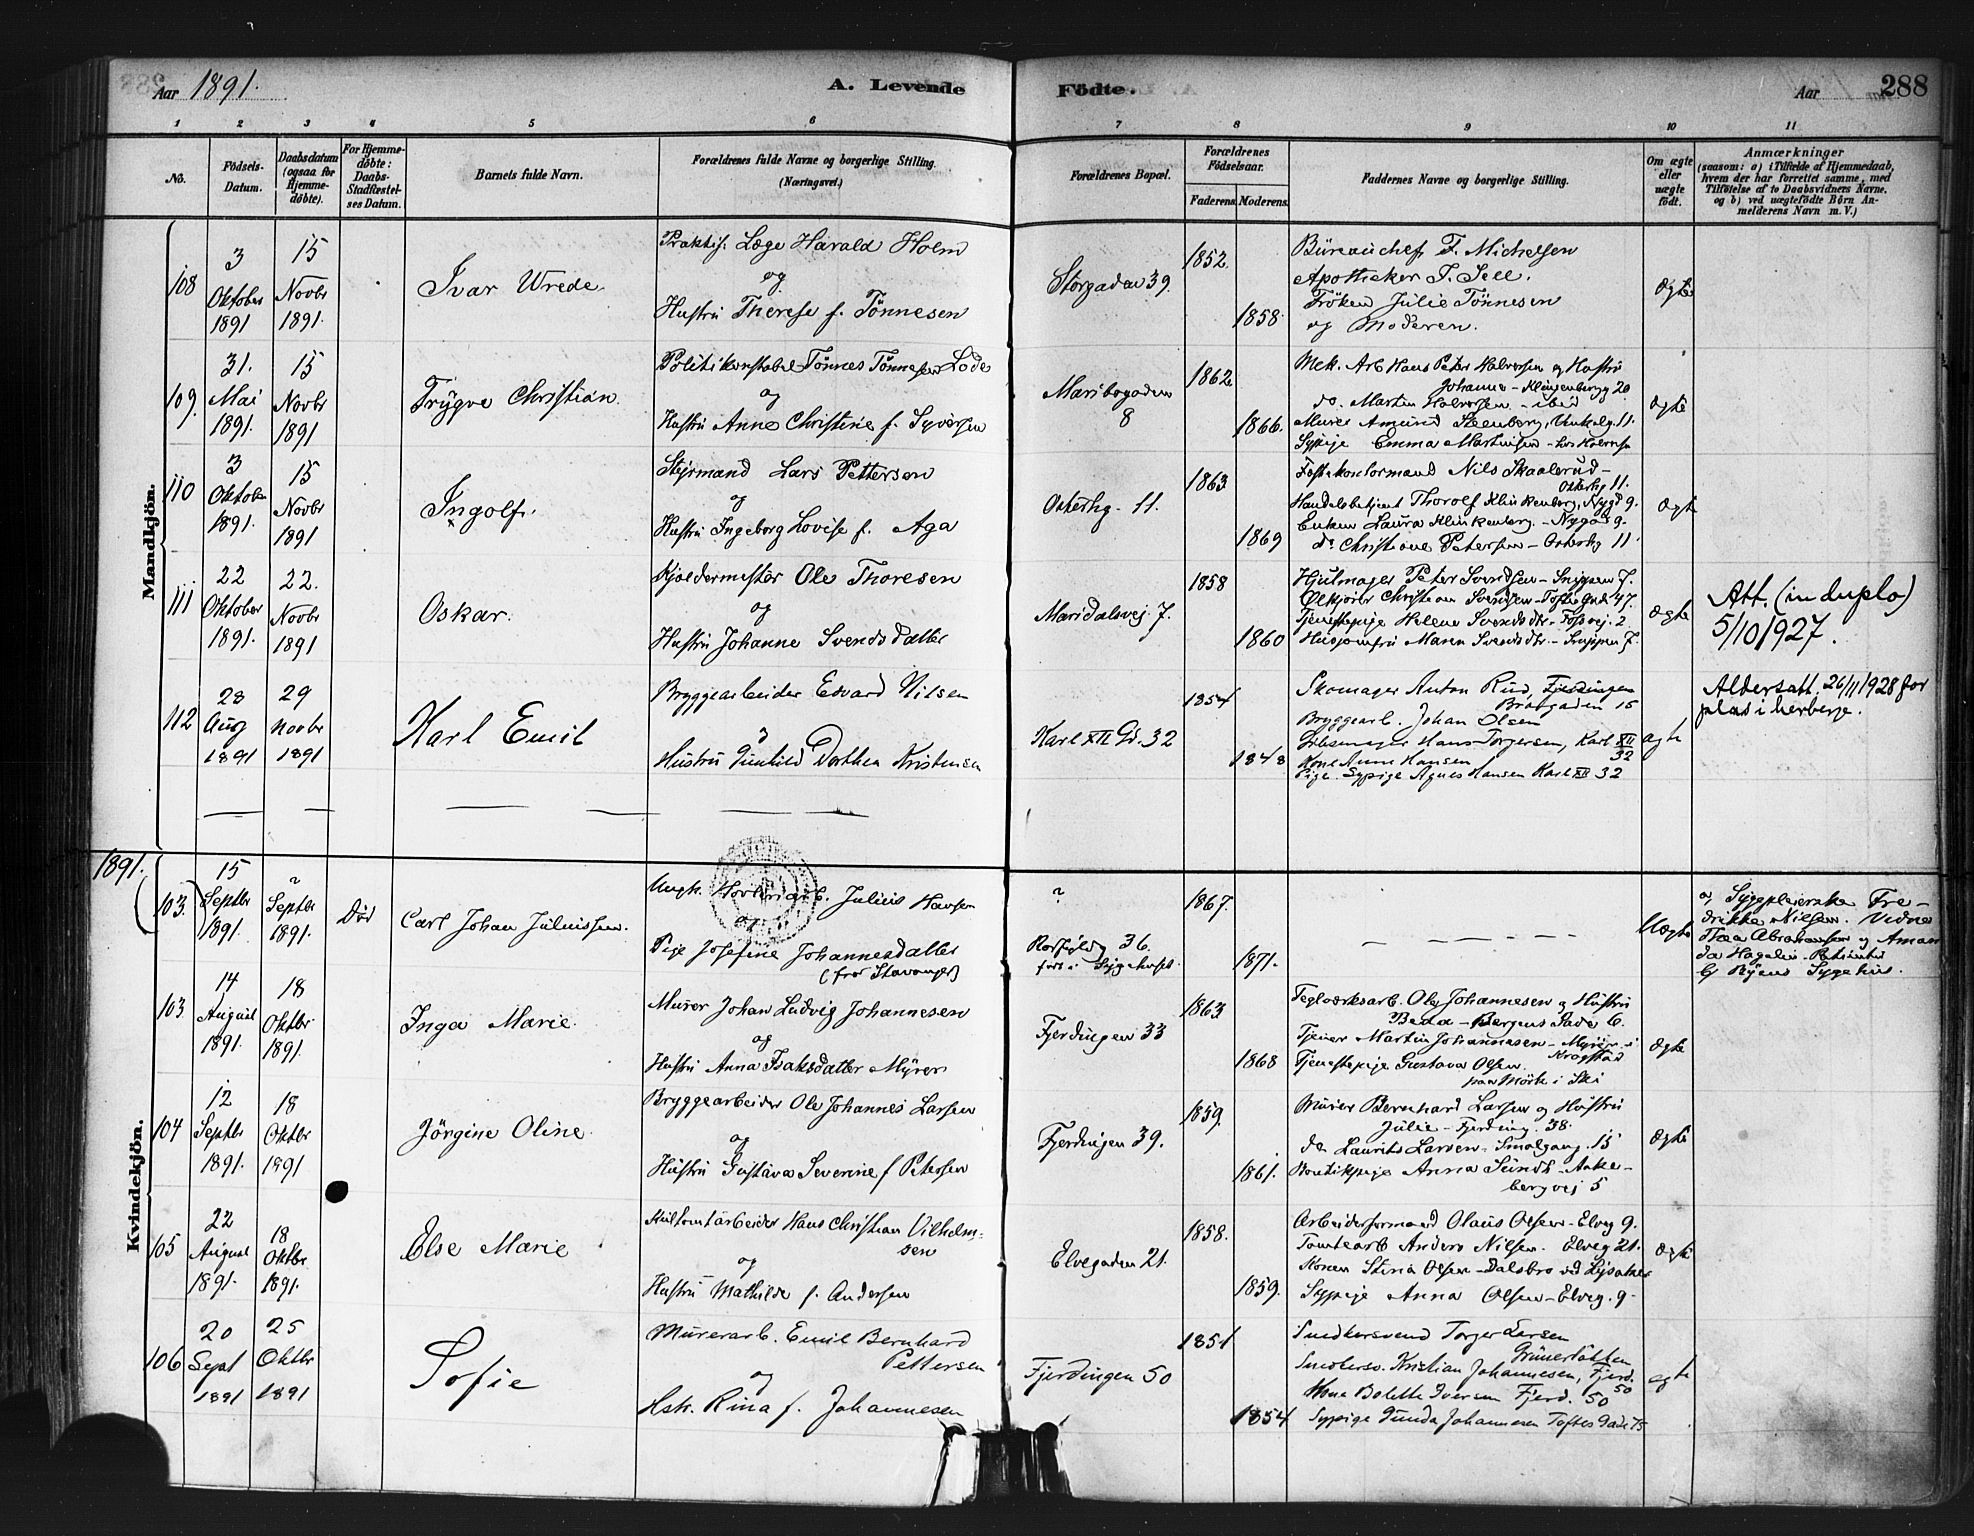 Aar 1891.
A. Levende
Födte.
Aar
288
1 2 3 4 5 6 7 8 9 10 11
No.
Födsels-
Datum.
Daabsdatum
(ogsaa for
Hjemme-
döbte).
For Hjemme-
döbte:
Daabs-
Stadfæstel-
ses Datum.
Barnets fulde Navn.
Forældrenes fulde Navne og borgerlige Stilling.
(Næringsvei.)
Forældrenes Bopæl.
Forældrenes
Födselsaar.
Faderens. Moderens.
Faddernes Navne og borgerlige Stilling.
Om ægte
eller
uægte
födt.
Anmærkninger
(saasom: a) i Tilfælde af Hjemmedaab,
hvem der har forrettet samme, med
Tilföielse af to Daabsvidners Navne.
og b) ved uægtefödte Börn An-
melderens Navn m. V.)
Mandkjön.
108
3
Oktober
1891
15
Novbr
1891.
Ivar Wrede.
Praktis. Læge Harald Holm
og
Hustru Therese f. Tönnesen
Storgaden 39.
1852
1858
Büreauchef F. Michelsen
Apotheker T. Sell.
Fröken Julie Tönnesen
og Moderen.
ægte
109.
31.
Mai
1891.
15
Novbr
1891
Trygve Christian.
Politikonstabel Tönnes Tönnesen Lode
og
Hustru Anne Christine f. Syversen
Maribogaden
8
1862
1866.
Mek. Arb Hans Peter Halvorsen og Hustru
Johanne - Klingenbergg 20
do. Martin Halvorsen - ibid
Murer Amund Steenberg,
Sypige Emma Martinsen
ægte
110
3
Oktober
1891.
15
Novbr
1891
Ingolf.
Styrmand Lars Pettersen
og
Hustru Ingeborg Lovise f. Aga
Osterhg. 11.
1863
1869
Nils Skaalerud -
Osterhg 11.
Handelsbetjent Thorolf Klinkenberg, Nygd 9.
Enken Laura Klinkenberg. - Nygd 9.
do Christiane Petersen - Osterhg 11.
ægte
111
22
Oktober
1891.
22.
Novbr
1891
Oskar.
Kjældermester Ole Thoresen
og
Hustru Johanne Svendsdatter
Maridalsvej 7.
1858
1860
Hjulmager Peter Svendsen - Snippen 7.
Ølkjörer Christian Svendsen - Toftes Gade 47.
Tjenestepige Helene Svendsdtr - Fossvej. 2
Husjomfru Maren Svendsdtr - Snippen 7.
ægte
Att. (in duplo)
5/10 1927.
112
28
Aug
1891
29
Novbr
1891
Karl Emil
Bryggearbeider Edvard Nilsen
o
Hustru Gunhild Dorthea Kristensen
Karl XII Gd. 32
1854
1848
Skomager Anton Rud, Fjerdingen
Brogaden 15
Bryggearb. Johan Olsen
Hans Torgersen, Karl XII
32
Kone Anne Hansen
Pige Sypige Agnes Hansen Karl XII 32
ægte
Aldersatt. 26/11 1928 for
plads i herberge.
Kvindekjön.
1891.
(103.)
15
Septbr
1891.
?
Septbr
1891.
Död
Carl Johan Juliussen.
Ungk. Julius Hansen
og
Pige Josefine Johannesdatter
(fra Stavanger)
?
36.
födt i Sygehuset
1867.
1871.
Uægte
a) Sygepleierske Fre-
drikke Nilsen. Vidner
Thea Abrahamsen og Aman
da Hagelin - Patienter
b) Byens Sygehus.
103.
14
August
1891.
18
Oktbr
1891.
Inga Marie.
Murer Johan Ludvig Johannesen
og
Hustru Anna Isaksdatter Myrer
Fjerdingen 33
1863
1868
Teglværksarb. Ole Johannesen og Hustru
Beda - Bergens Gade 6.
Tjener Martin Johannesen - Myrer i
Kragstad
Tjenestepige Gustava Olsen.
paa Mörk i Ski
ægte
104
12
Septbr
1891.
18
Oktbr
1991
Jörgine Oline.
Bryggearbeider Ole Johannes Larsen
og
Hustru Gustava Severine f Petersen
Fjerdingen 39.
1859.
1861.
Murer Bernhard Larsen og Hustru
Julie - Fjerding. 38.
do Laurits Larsen. Smalgang. 15
Butikpige Anna Sund - Aake-
bergvej 5
ægte
105
22
August
1891.
18
Oktbr
1891.
Else Marie
Kultomtarbeider Hans Christian Vilhelm-
sen
og
Hustru Mathilde f. Andersen
Elvegaden 21.
1858.
1859.
Arbeidsformand Olaus Olsen - Elveg 9.
Tomtearb Anders Nilsen. Elveg 21.
Konen Stina Olsen - Dalsbro ved Lysaker
Sypige Anna Olsen - Elveg. 9
ægte
106
20
Sept
1891
25
Oktbr
1891
Sofie
Murerarb. Emil Bernhard
Pettersen
og
Hstr. Rina f. Johannesen
Fjerdingen 50
1851
1854
Snedkersvend Torger Larsen
Grünerlökken
Snedkersv. Kristian Johannesen, Fjerd.
50
Kone Bolette Iversen Fjerd. 50
Sypige Gunda Johannesen Toftes Gade 75
ægte